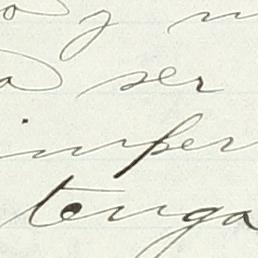 o y
a ser
imper
tenga